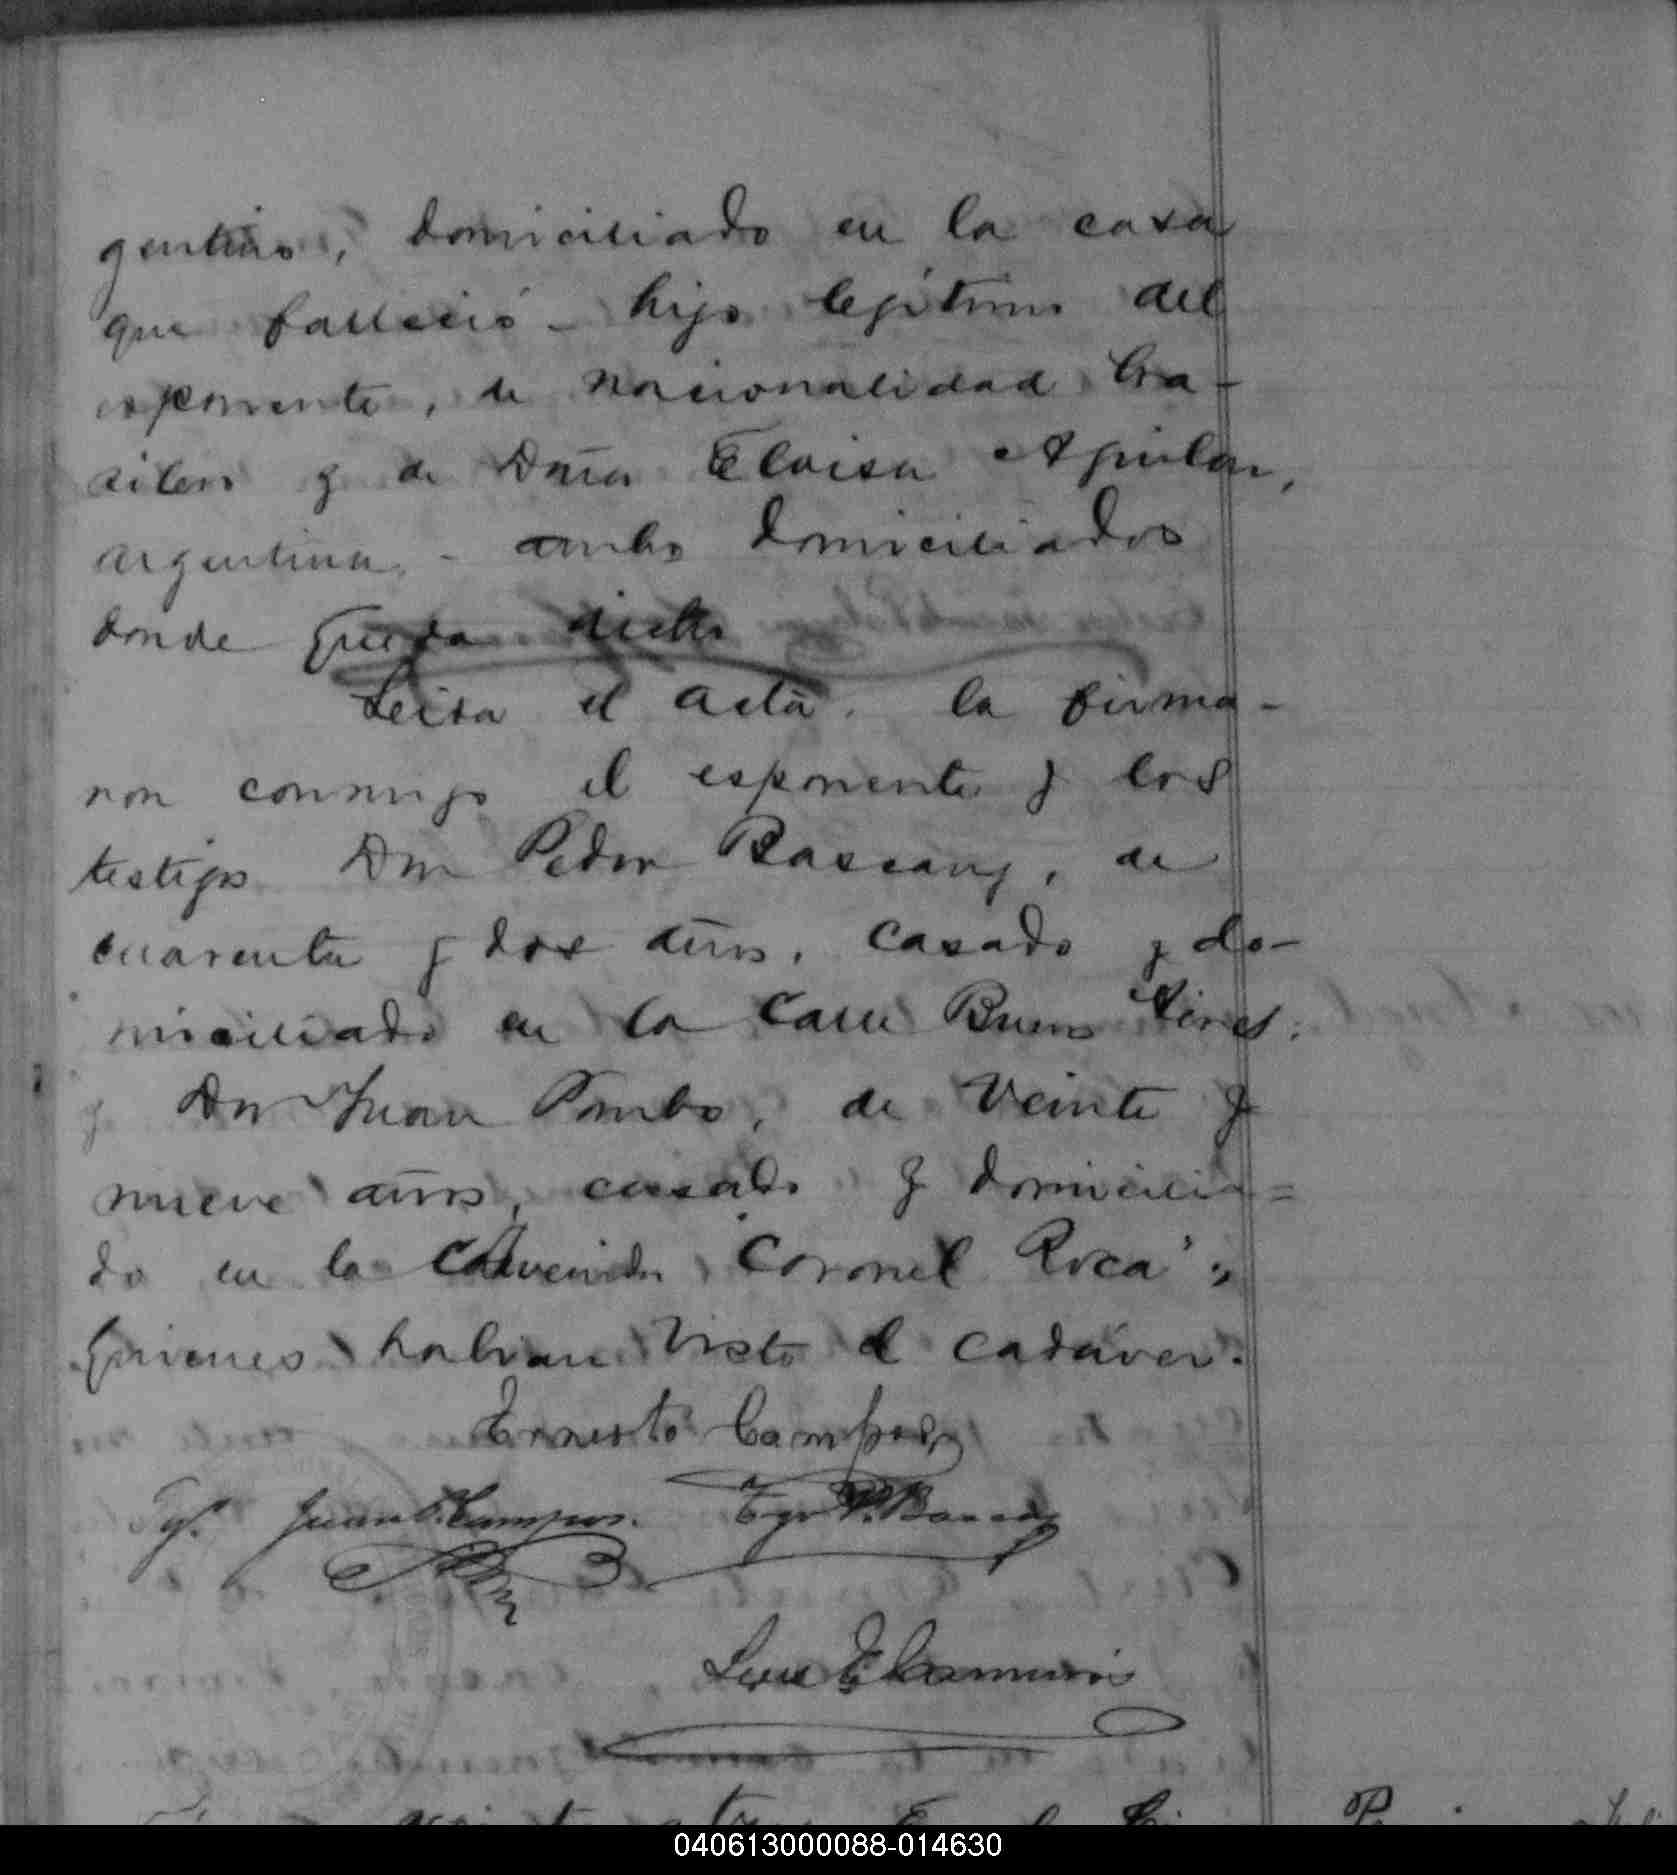 gentino, domiciliado en la casa
que falleció - hijo legítimo del
esponente, de nacionalidad bra-
silera y de Doña Eloisa Aguilar,
argentina, - ambos domiciliados
donde queda dicho
Leida el acta, la firma-
ron conmigo el esponente y los
testigos Don Pedro Bascany, de
cuarenta y dos años, casado y do-
miciliado en la Calle Buenos Aires,
y Don Juan Pombo, de veinte y
nueve años, casado y domicilia=
do en la Avenida "Coronel Roca",
quienes habian visto el cadáver.
Ernesto Campos
Tgo. Juan Campos. Tgo P. Bascany
Luis E.
040613000088-014630